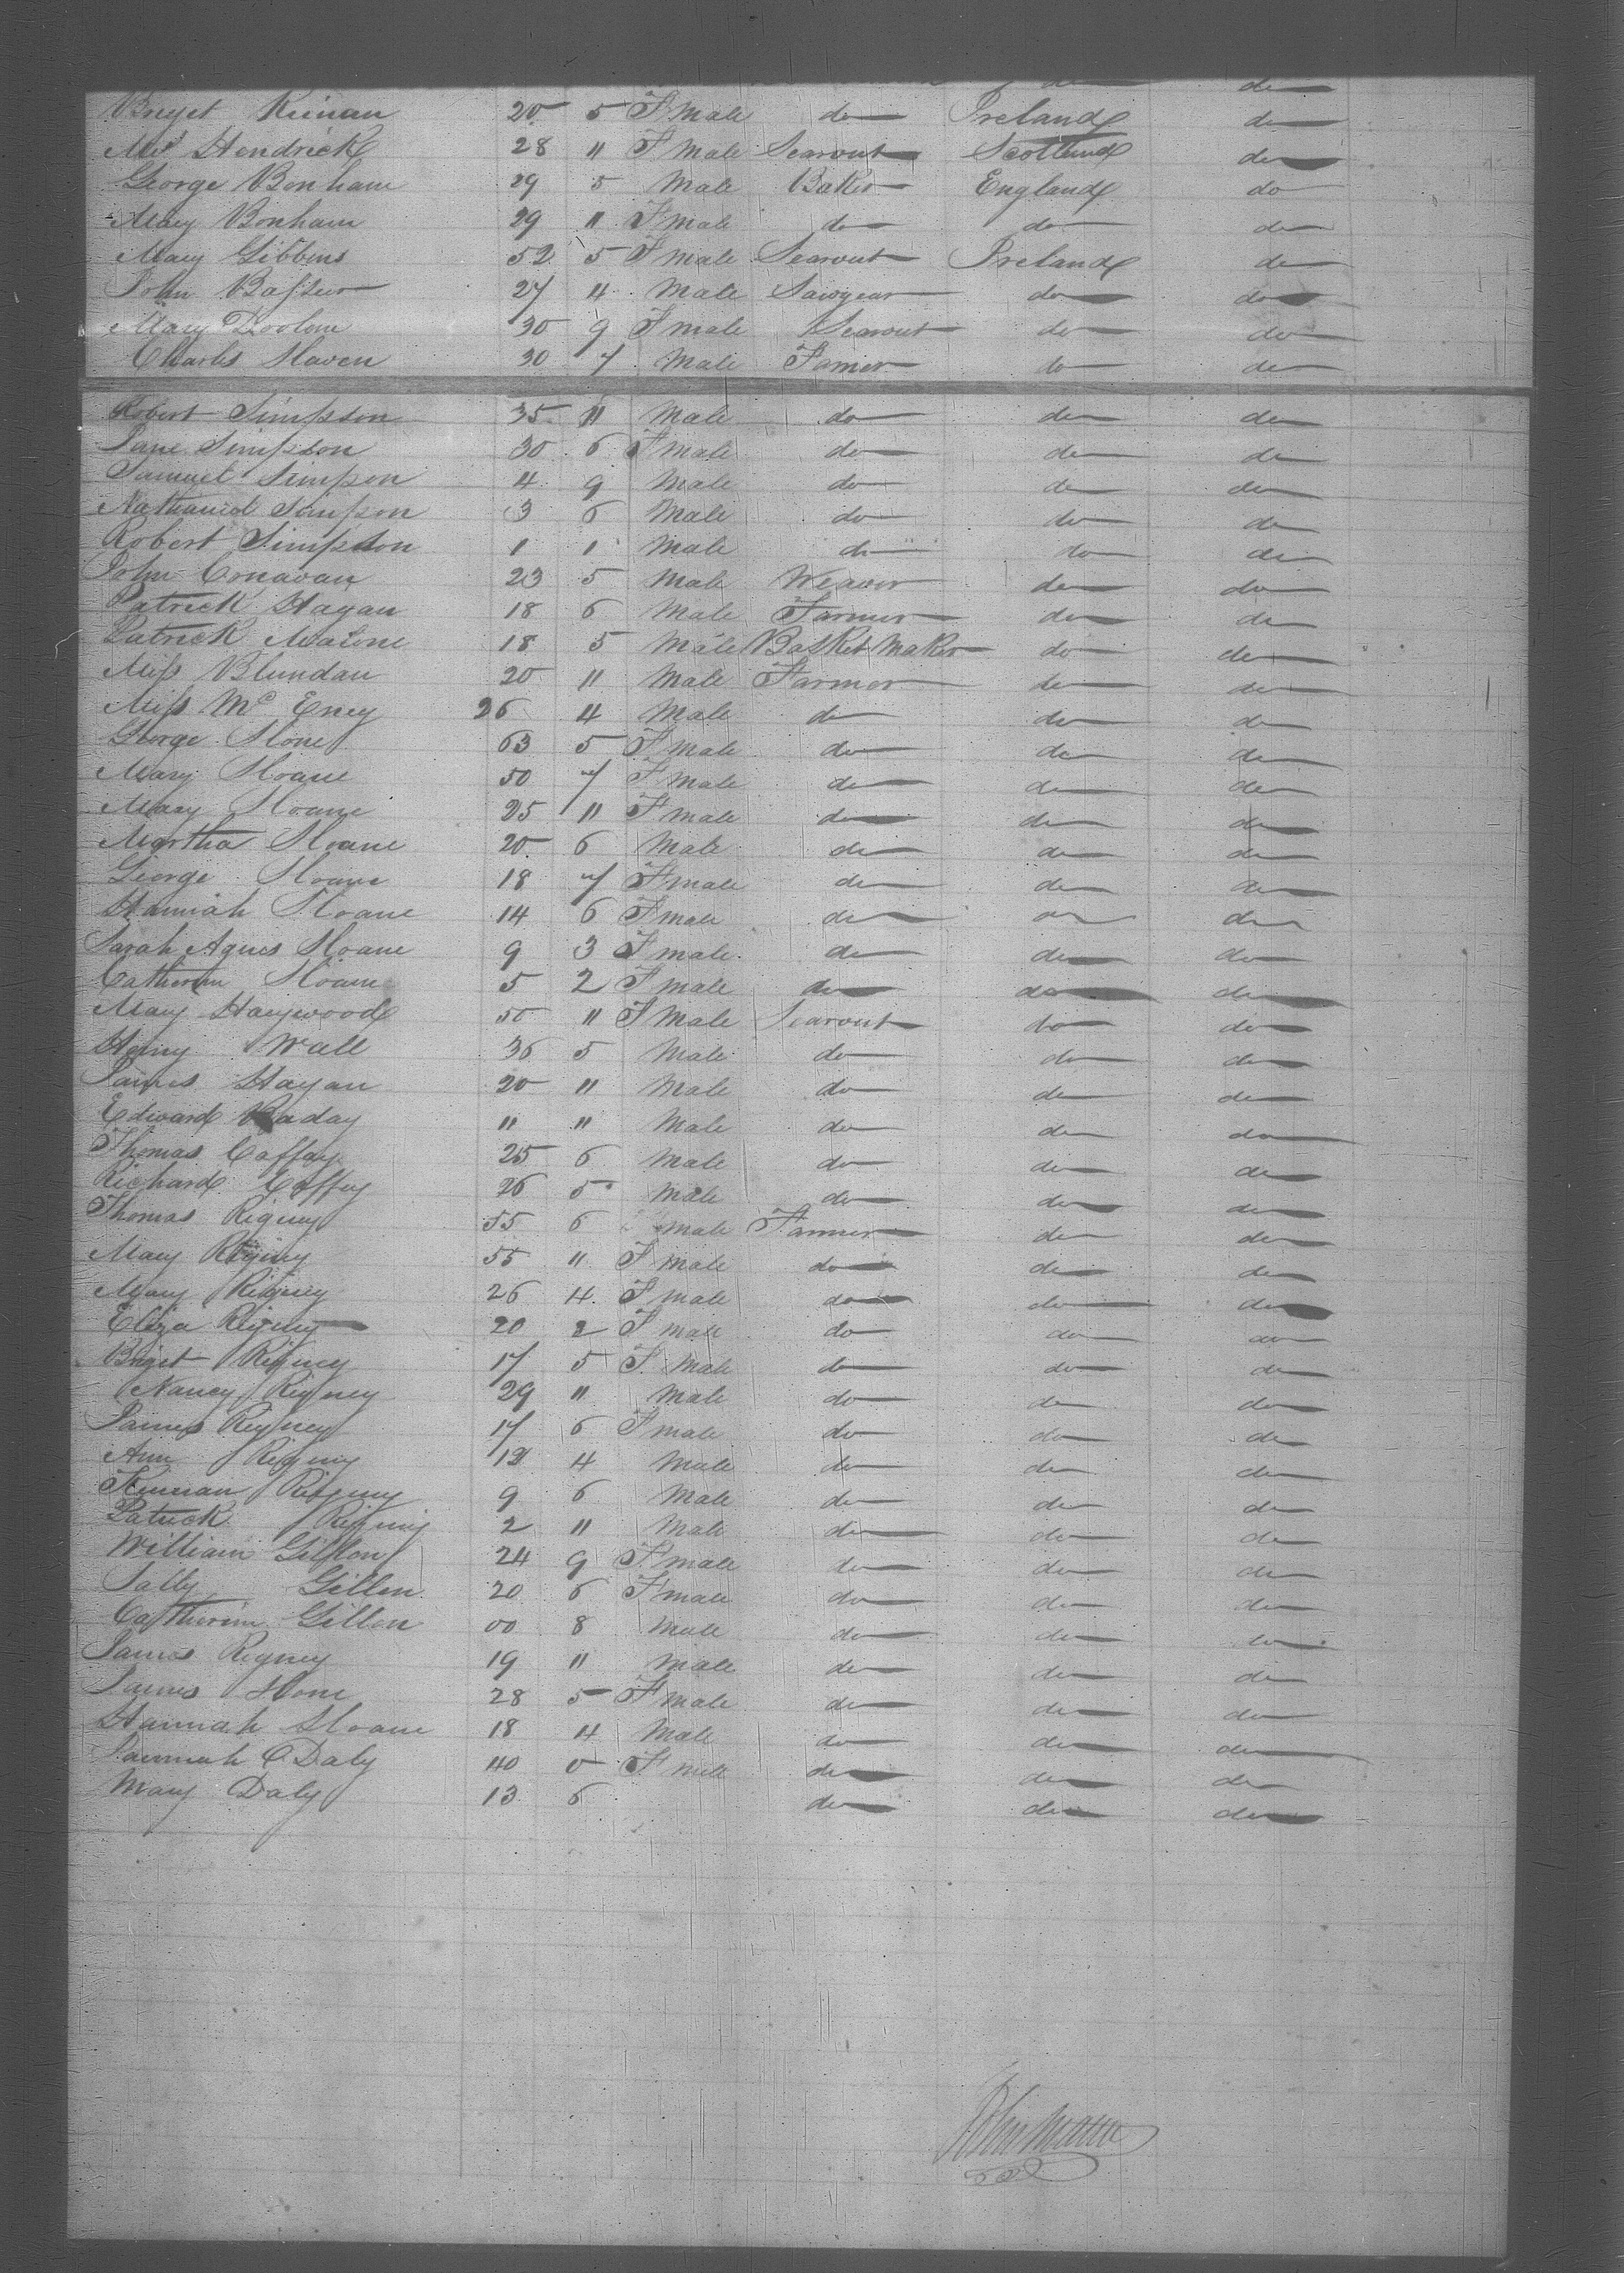 do do
Briget Kinan 20 5 F Male do Ireland do
Mrs Hendrick 28 11 F Male Searvut Scotland do
George Bonham 29 5 Male Baker England do
Mary Bonham 29 11 F male do do do
Mary Gibbens 52 5 F Male Searvut Ireland do
John 27 4 Male Sawyear do do
Mary Doolan 30 9 F male Searvut do do
Charles Slaven 30 7 Male Farmer do do
Robert Simpson 35 11 Male do do do
Jane Simpson 30 6 F male do do do
Samuel Simpson 4 9 Male do do do
Nathaniel Simpson 3 6 Male do do do
Robert Simpson 1 1 Male do do do
John Conavan 23 5 Male Weaver do do
Patrick Hagan 18 6 Male Farmer do do
Patrick Malone 18 5 Male Basket Maker do do
Miss Blundan 20 11 Male Farmer do do
Miss Mc Eney 26 4 Male do do do
George Slone 63 5 F male do do do
Mary Sloane 50 7 F male do do do
Mary Sloane 25 11 F male do do do
Martha Sloane 20 6 Male do do do
George Sloane 18 7 F male do do do
Hannah Sloane 14 6 F male do do do
Sarah Agnes Sloane 9 3 F male do do do
Catherin Sloane 5 2 F male do do do
Mary Haywood 50 11 F Male Searvut do do
Henry Wall 36 5 Male do do do
James Hagan 20 11 Male do do do
Edward 11 11 Male do do do
Thomas Caffay 25 6 Male do do do
Richard Coffey 26 5 Male do do do
Thomas Rigney 55 6 male Farmer do do
Mary Rigney 55 11 F male do do do
Mary Rigney 26 4 F male do do do
Eliza Rigney 20 2 F male do do do
Briget Rigney 17 5 F male do do do
Nancy Rigney 29 11 Male do do do
James Rigney 17 6 F male do do do
Ann Rigney 4 Male do do do
Kiernan Rigney 9 6 Male do do do
Patrick Rigney 2 11 Male do do do
William Gillon 24 9 F male do do do
Sally Gillen 20 6 F male do do do
Catherin Gillon 00 8 Male do do do
James Rigney 19 11 Male do do do
James Slone 28 5 F male do do do
Hannah Sloane 18 4 Male do do do
Daly 40 0 F male do do do
Mary Daly 13 6 do do do
John Mann